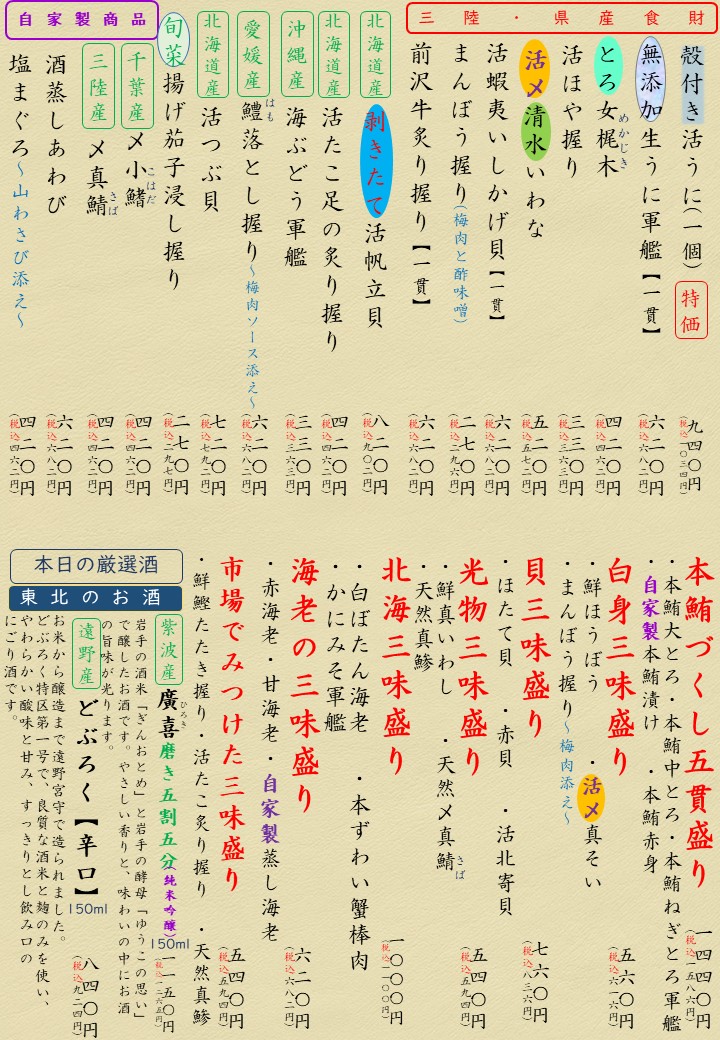 三陸・県産食財
殻付き活うに(一個) 特価
九四〇円
(税込一〇三四円)
無添加生うに軍艦【一貫】
六二〇円
(税込六八二円)
とろ女梶木
めかじき
四二〇円
(税込四六二円)
活ほや握り
三三〇円
(税込三六三円)
活〆清水いわな
五二〇円
(税込五七二円)
活蝦夷いしかげ貝【一貫】
六二〇円
(税込六八二円)
まんぼう握り(梅肉と酢味噌)
二七〇円
(税込二九六円)
前沢牛炙り握り【一貫】
六二〇円
(税込六八二円)
北海道産
剥きたて活帆立貝
八二〇円
(税込九〇二円)
北海道産
活たこ足の炙り握り
四二〇円
(税込四六二円)
沖縄産
海ぶどう軍艦
三三〇円
(税込三六三円)
愛媛産
鱧落とし握り~梅肉ソース添え~
はも
六二〇円
(税込六八二円)
北海道産
活つぶ貝
七二〇円
(税込七九二円)
旬菜揚げ茄子浸し握り
二七〇円
(税込二九七円)
自家製商品
千葉産
〆小鰭
こはだ
四二〇円
(税込四六二円)
三陸産
〆真鯖
さば
四二〇円
(税込四六二円)
酒蒸しあわび
六二〇円
(税込六八二円)
塩まぐろ~山わさび添え~
四二〇円
(税込四六二円)
本鮪づくし五貫盛り
一四四〇円
(税込一五八六円)
・本鮪大とろ・本鮪中とろ・本鮪ねぎとろ軍艦
・自家製本鮪漬け ・本鮪赤身
白身三味盛り
五六〇円
(税込六一六円)
・鮮ほうぼう ・活〆真そい
・まんぼう握り~梅肉添え~
貝三味盛り
七六〇円
(税込八三六円)
・ほたて貝 ・赤貝 ・活北寄貝
光物三味盛り
五四〇円
(税込五九四円)
・鮮真いわし ・天然〆真鯖
さば
・天然真鯵
北海三味盛り
一〇〇〇円
(税込一一〇〇円)
・白ぼたん海老 ・本ずわい蟹棒肉
・かにみそ軍艦
海老の三味盛り
六二〇円
(税込六八二円)
・赤海老・甘海老・自家製蒸し海老
市場でみつけた三味盛り
五四〇円
(税込五九四円)
・鮮鰹たたき握り・活たこ炙り握り ・天然真鯵
本日の厳選酒
東北のお酒
紫波産
廣喜磨き五割五分(純米吟醸)
ひろき
150ml
一一五〇円
(税込一二六五円)
岩手の酒米「ぎんおとめ」と岩手の酵母「ゆうこの思い」
で醸したお酒です。やさしい香りと、味わいの中にお酒
の旨味が光ります。
遠野産
どぶろく【辛口】
150ml
八四〇円
(税込九二四円)
お米から醸造まで遠野宮守で造られました。
どぶろく特区第一号で、良質な酒米と麹のみを使い、
やわらかい酸味と甘み、すっきりとし飲み口の
にごり酒です。